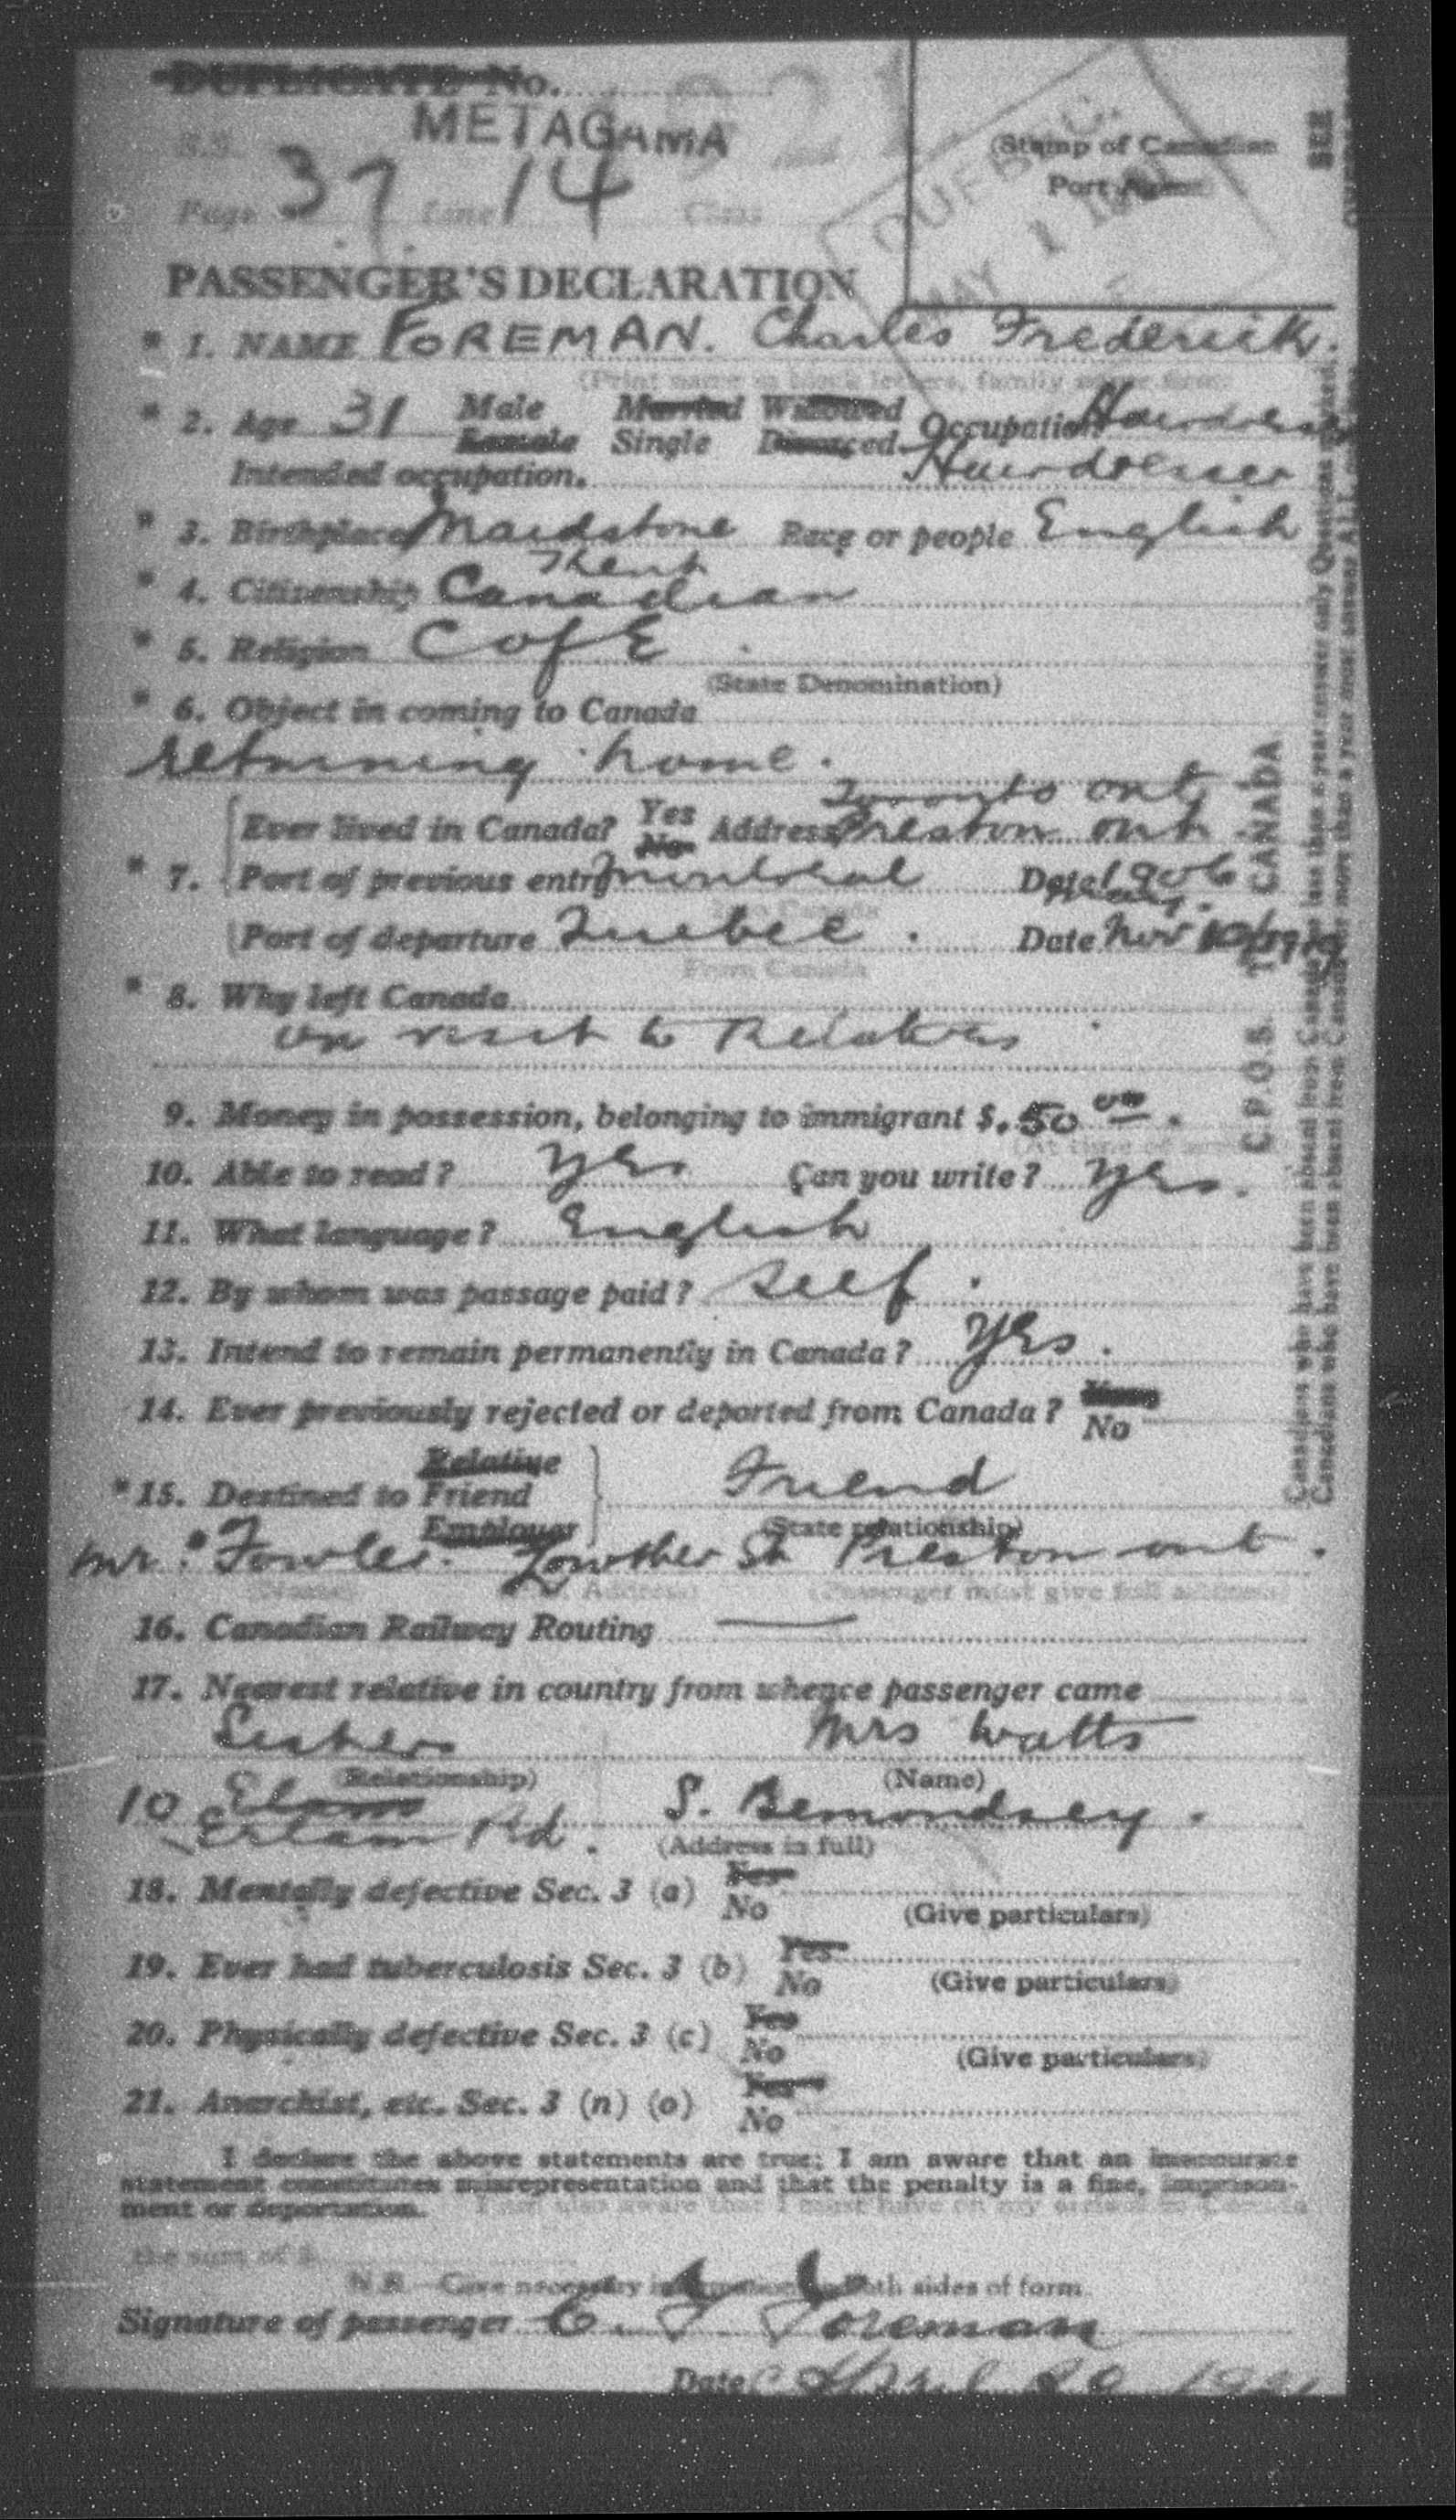 DUPLICATE No.
METAGAMA
S.S.
Page 37 Line 14 Class
(Stamp of Canadian
Port Agent)
QUEBEC.
MAY 1
PASSENGER'S DECLARATION
* 1. NAME FOREMAN. Charles Frederick.
(Print name in block letters, family name first)
* 2. Age 31 Male Married Widowed Occupation Hairdresser
Female Single Divorced
Intended occupation. Hairdresser
* 3. Birthplace Maidstone Race or people English
Kent
* 4. Citizenship Canadian
* 5. Religion C of E
(State Denomination)
* 6. Object in coming to Canada
returning home.
Toronto ont
Ever lived in Canada? Yes No Address Preston ont
* 7. Port of previous entry montreal Date 1906
Into Canada
Port of departure Quebec. Date Nov
From Canada
* 8. Why left Canada
on visit to Relatives
9. Money in possession, belonging to immigrant $. 50 00.
10. Able to read? yes Can you write? yes.
11. What language? English
12. By whom was passage paid? self.
13. Intend to remain permanently in Canada? yes.
14. Ever previously rejected or deported from Canada? Yes
No
Relative
* 15. Destined to Friend Friend
Employer (State relationship)
mr. Fowler. Lowther St Preston ont.
(Name) (Address) (Passenger must give full address)
16. Canadian Railway Routing —
17. Nearest relative in country from whence passenger came
Sister Mrs Watts
(Relationship) (Name)
10 Elam S. Bemondsey.
Erlam Rd. (Address in full)
18. Mentally defective Sec. 3 (a) Yes
No (Give particulars)
19. Ever had tuberculosis Sec. 3 (b) Yes
No (Give particulars)
20. Physically defective Sec. 3 (c) Yes
No (Give particulars)
21. Anarchist, etc. Sec. 3 (n) (o) Yes
No
I declare the above statements are true; I am aware that an inaccurate
statement constitutes misrepresentation and that the penalty is a fine, imprison-
ment or deportation. I am also aware that I must have on my arrival in Canada
the sum of $
N.B.—Give necessary information on both sides of form.
Signature of passenger C. F. Foreman
Date April 20 1921
SEE
C.P.O.S. TO CANADA
Canadians who have been absent from Canada less than a year answer only Questions marked.
Canadians who have been absent from Canada for more than a year must answer ALL